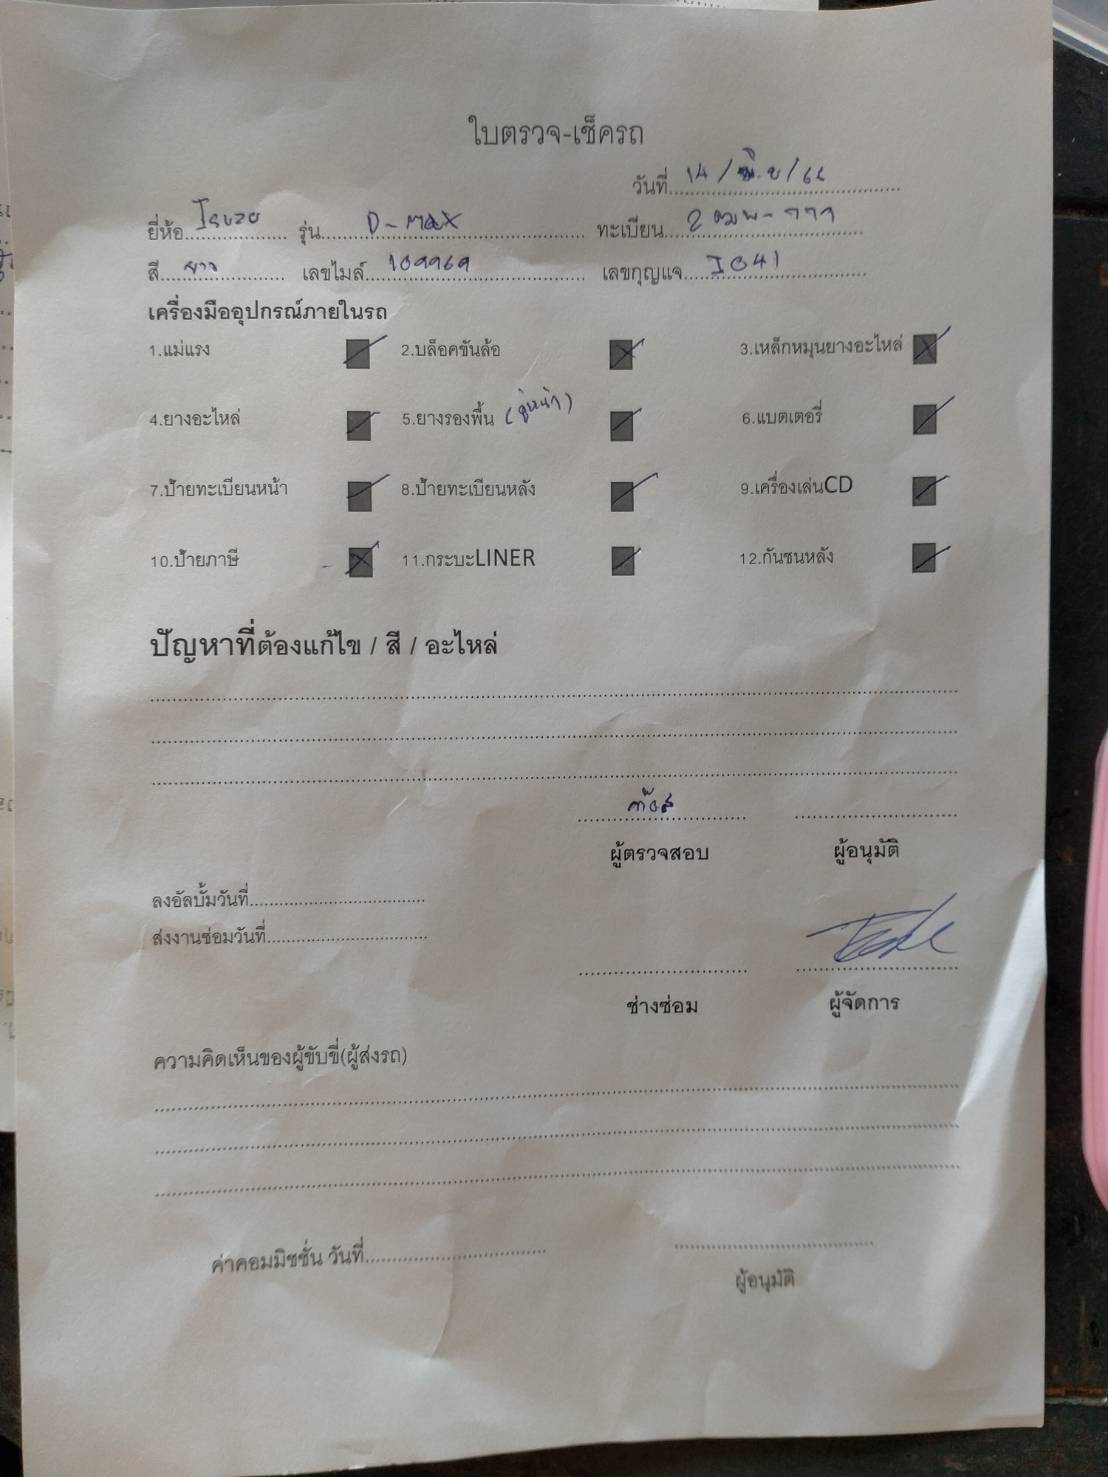 ใบตรวจ-เช็ครถ
วันที่ 14 / มิ.ย / 66
ยี่ห้อ Isuzu รุ่น D-Max ทะเบียน
สี ขาว เลขไมล์ 109969 เลขกุญแจ I041
เครื่องมืออุปกรณ์ภายในรถ
1.แม่แรง 2.บล็อคขันล้อ 3.เหล็กหมุนยางอะไหล่
4.ยางอะไหล่ 5.ยางรองพื้น (คู่หน้า) 6.แบตเตอรี่
7.ป้ายทะเบียนหน้า 8.ป้ายทะเบียนหลัง 9.เครื่องเล่นCD
10.ป้ายภาษี 11.กระบะLINER 12.กันชนหลัง
ปัญหาที่ต้องแก้ไข / สี / อะไหล่
ผู้ตรวจสอบ ผู้อนุมัติ
ลงอัลบั้มวันที่
ส่งงานซ่อมวันที่
ช่างซ่อม ผู้จัดการ
ความคิดเห็นของผู้ขับขี่(ผู้ส่งรถ)
ค่าคอมมิชชั่น วันที่
ผู้อนุมัติ